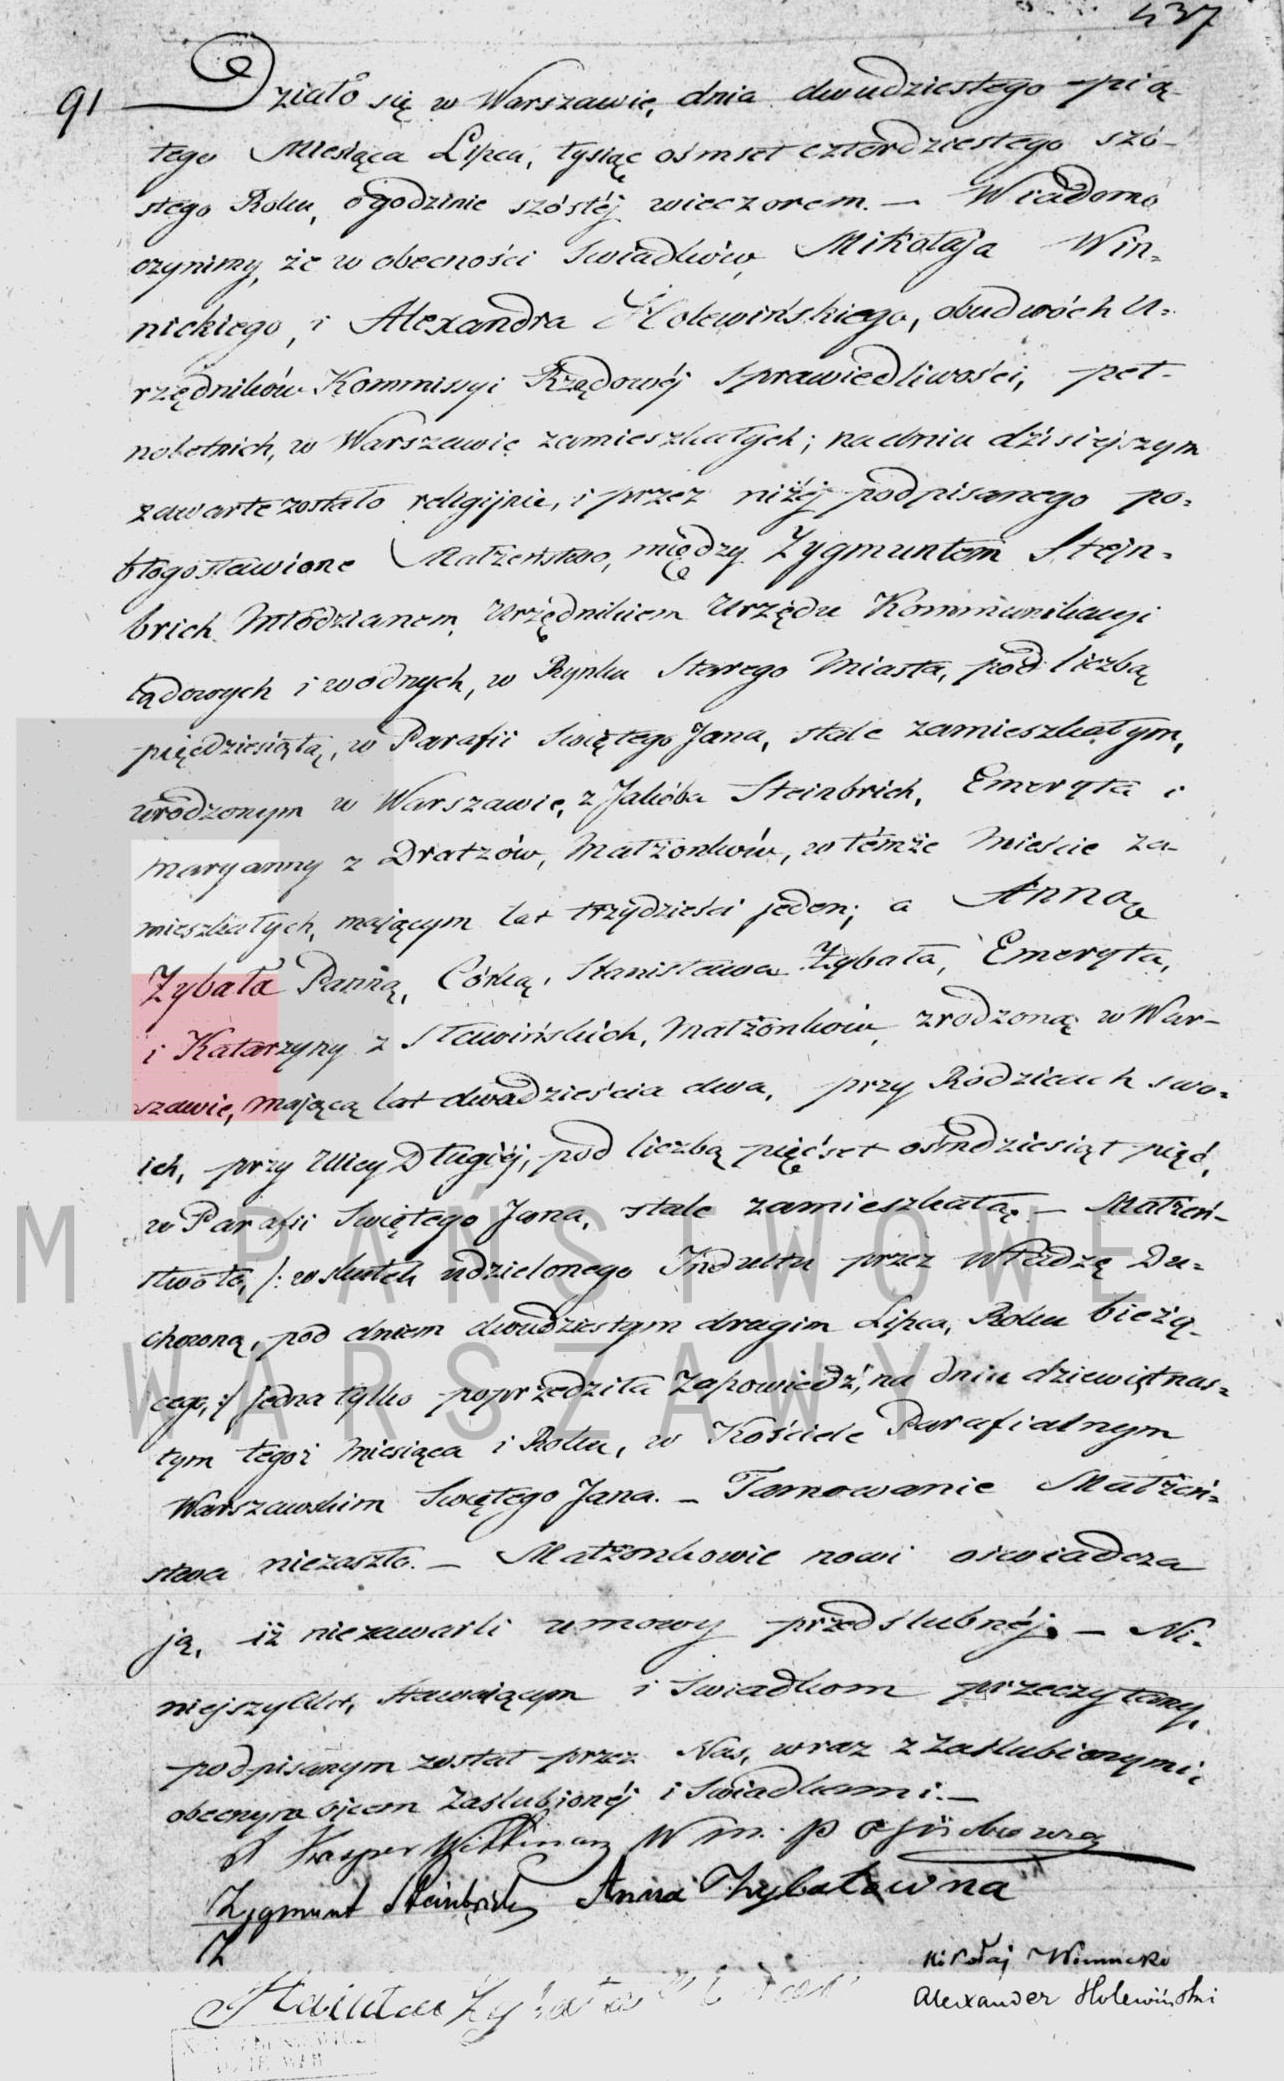 437
91 Działo się w Warszawie, dnia dwudziestego pią-
tego Miesiąca Lipca, tysiąc ośmset czterdziestego szó-
stego Roku, o godzinie szóstéj wieczorem. — Wiadomo
czynimy, że w obecności Swiadków, Mikołaja Win-
nickiego, i Alexandra Holewińskiego, obudwóch U-
rzędników Kommissyi Rządowéj Sprawiedliwości, peł-
noletnich, w Warszawie zamieszkałych; na dniu dzisiejszym
zawarte zostało religijnie, i przez niżéj podpisanego po-
błogosławione Małżeństwo, między Zygmuntem Stejn-
brich Młodzianem, Urzędnikiem Urzędu Kommunikacyi
lądowych i wodnych, w Rynku Starego Miasta, pod liczbą
pięćdziesiątą, w Parafii Swiętego Jana, stale zamieszkałym,
urodzonym w Warszawie, z Jakóba Steinbrich, Emeryta i
Maryanny z Dratzów, Małżonków, w témże Mieście za-
mieszkałych, mającym lat trzydzieści jeden; a Anną
Zybała Panną, Córką, Stanisława Zybała, Emeryta,
i Katarzyny z Sławińskich, Małżonków, zrodzoną w War-
szawie, mającą lat dwadzieścia dwa, przy Rodzicach swo-
ich, przy Ulicy Długiéj, pod liczbą pięćset ośmdziesiąt pięć,
w Parafii Swiętego Jana, stale zamieszkałą. — Małżeń-
stwo to, /: w skutek udzielonego Indultu przez Władzę Du-
chowną, pod dniem dwudziestym drugim Lipca, Roku bieżą-
cego, :/ jedna tylko poprzedziła Zapowiedź, na dniu dziewiętnas-
tym tegoż Miesiąca i Roku, w Kościele Parafialnym
Warszawskim Swiętego Jana. — Tamowanie Małżeń-
stwa niezaszło. — Małżonkowie nowi oświadcza
ją, iż niezawarli umowy przedślubnéj. — Ni-
niejszy Akt, Stawającym i Swiadkom przeczytany,
podpisanym został przez Nas, wraz z Zaślubionymi,
obecnym ojcem Zaślubionéj i Swiadkami. —
Zygmunt Steinbrich Anna Zybałowna
Mikołaj Winnicki
Alexander Holewiński
M PAŃSTWOWE
WARSZAWY